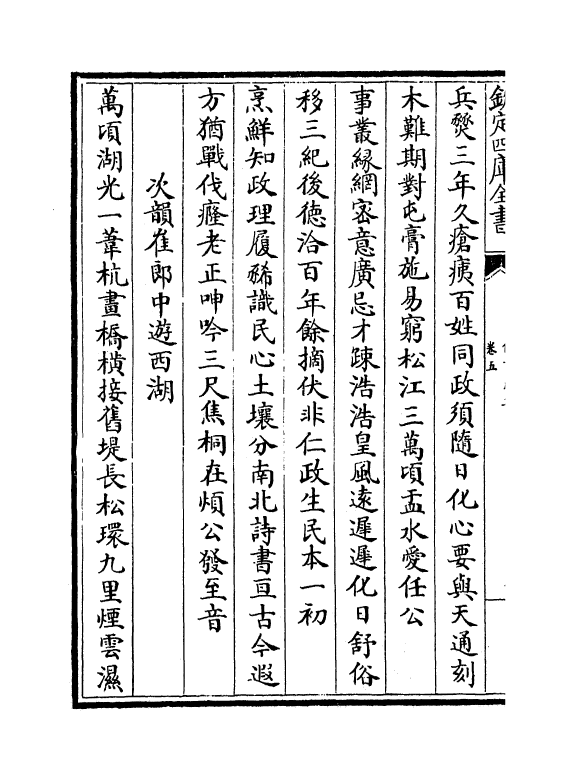 欽定四庫全書
卷五
兵燹三年久瘡痍百姓同政須隨日化心要與天通刻
木難期對屯膏施易窮松江三萬頃盂水愛任公
事叢緣網密意廣忌才疎浩浩皇風遠遲遲化日舒俗
移三紀後德洽百年餘摘伏非仁政生民本一初
烹鮮知政理履豨識民心土壤分南北詩書亘古今遐
方猶戰伐癃老正呻吟三尺焦桐在煩公發至音
次韻崔郎中遊西湖
萬頃湖光一葦杭畫橋橫接舊堤長松環九里煙雲濕